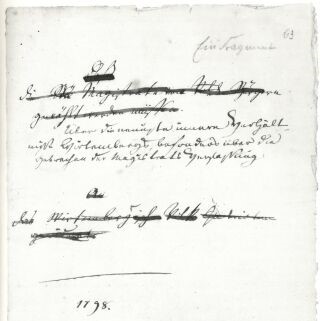 Ein Fragment
63
Ob
die Magistrate von den Bürgern
gewählt werden müssen
Über die neuesten innern Verhält-
nisse Wirtembergs, besonders über die
Gebrechen der Magistrats Verfassung.
An
das Wirtembergische Volk
1798.